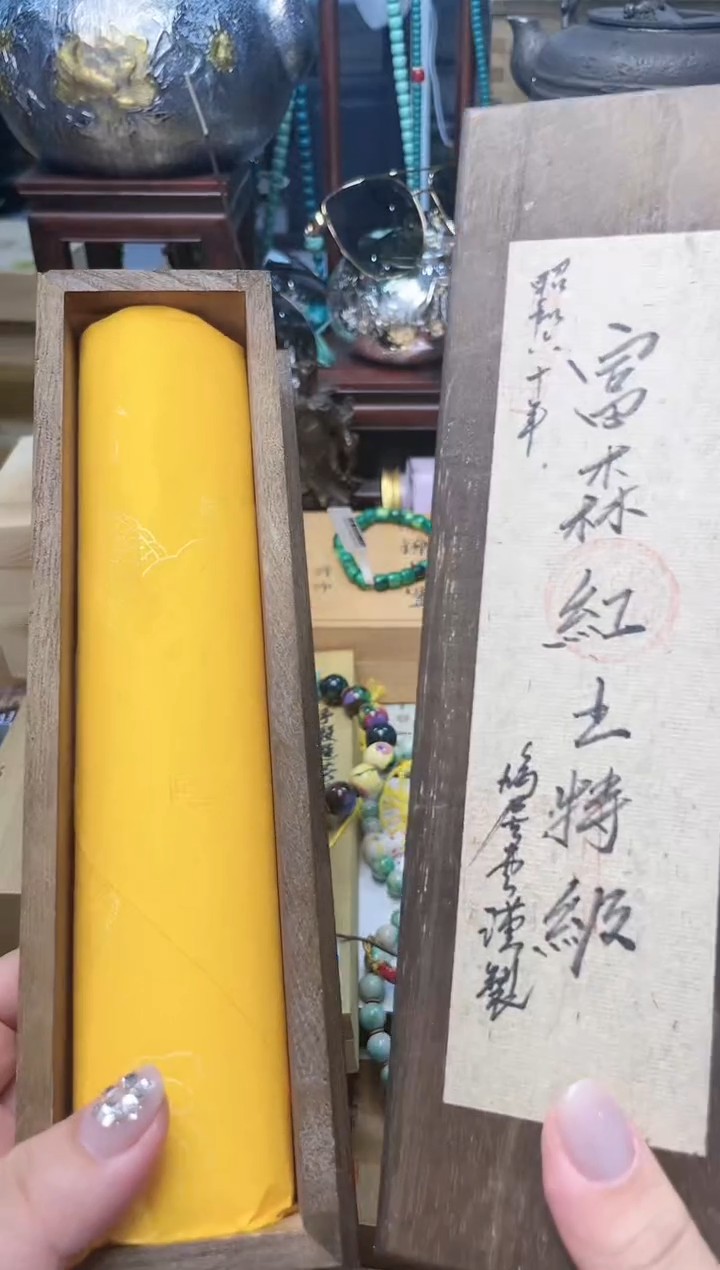 昭和六十年
富森紅土特級
鳩居堂謹製